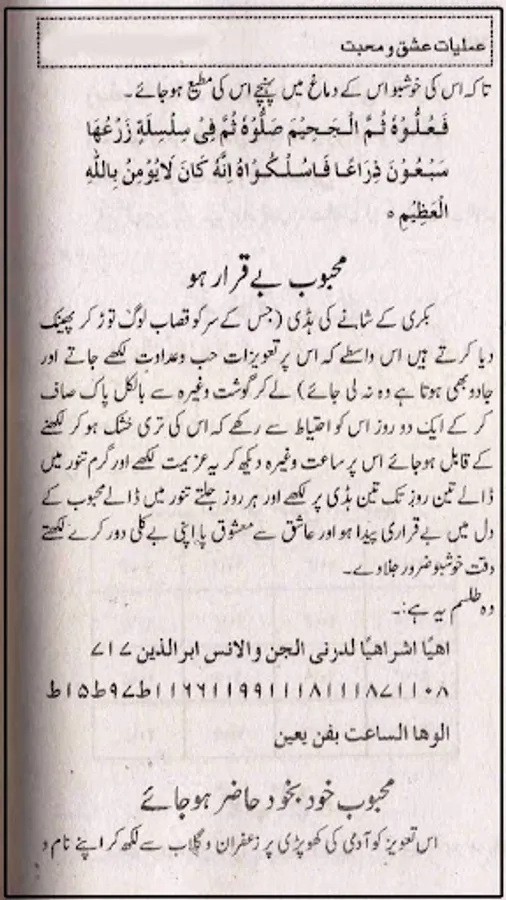 عملیات عشق و محبت
تاکہ اس کی خوشبو اس کے دماغ میں پہنچے اس کی مطیع ہو جائے۔
فَعُلُّوْهُ ثُمَّ الْجَحِيْمَ صَلُّوْهُ ثُمَّ فِیْ سِلْسِلَةٍ زَرْعُهَا
سَبْعُوْنَ ذِرَاعًا فَاسْلُكُوْاهُ اِنَّهٗ كَانَ لَا يُوْمِنُ بِاللّٰهِ
الْعَظِيْمِ ہ
محبوب بے قرار ہو
بکری کے شانے کی ہڈی (جس کے سر کو قصاب لوگ توڑ کر پھینک
دیا کرتے ہیں اس واسطے کہ اس پر تعویزات حب وعداوت لکھے جاتے اور
جادو بھی ہوتا ہے وہ نہ لی جائے) لے کر گوشت وغیرہ سے بالکل پاک صاف
کر کے ایک دو روز اس کو احتیاط سے رکھے کہ اس کی تری خشک ہو کر لکھنے
کے قابل ہو جائے اس پر ساعت وغیرہ دیکھ کر یہ عزیمت لکھے اور گرم تنور میں
ڈالے تین روز تک تین ہڈی پر لکھے اور ہر روز جلتے تنور میں ڈالے محبوب کے
دل میں بے قراری پیدا ہو اور عاشق سے معشوق پا اپنی بے کلی دور کرے لکھتے
وقت خوشبو ضرور جلاوے۔
وہ طلسم یہ ہے:۔
اھیًا اشراھیًا لدرنی الجن والانس ابر الذین ۷۱۷
۱۱۰۸ ۱۱۸۷۱۱۱۸۱۱۱۹۹۱۱۶۶۱۱ط۹۷ط۱۵ط
الوھا الساعت بفن یعین
محبوب خود بخود حاضر ہو جائے
اس تعویز کو آدمی کی کھوپڑی پر زعفران و گلاب سے لکھ کر اپنے نام و